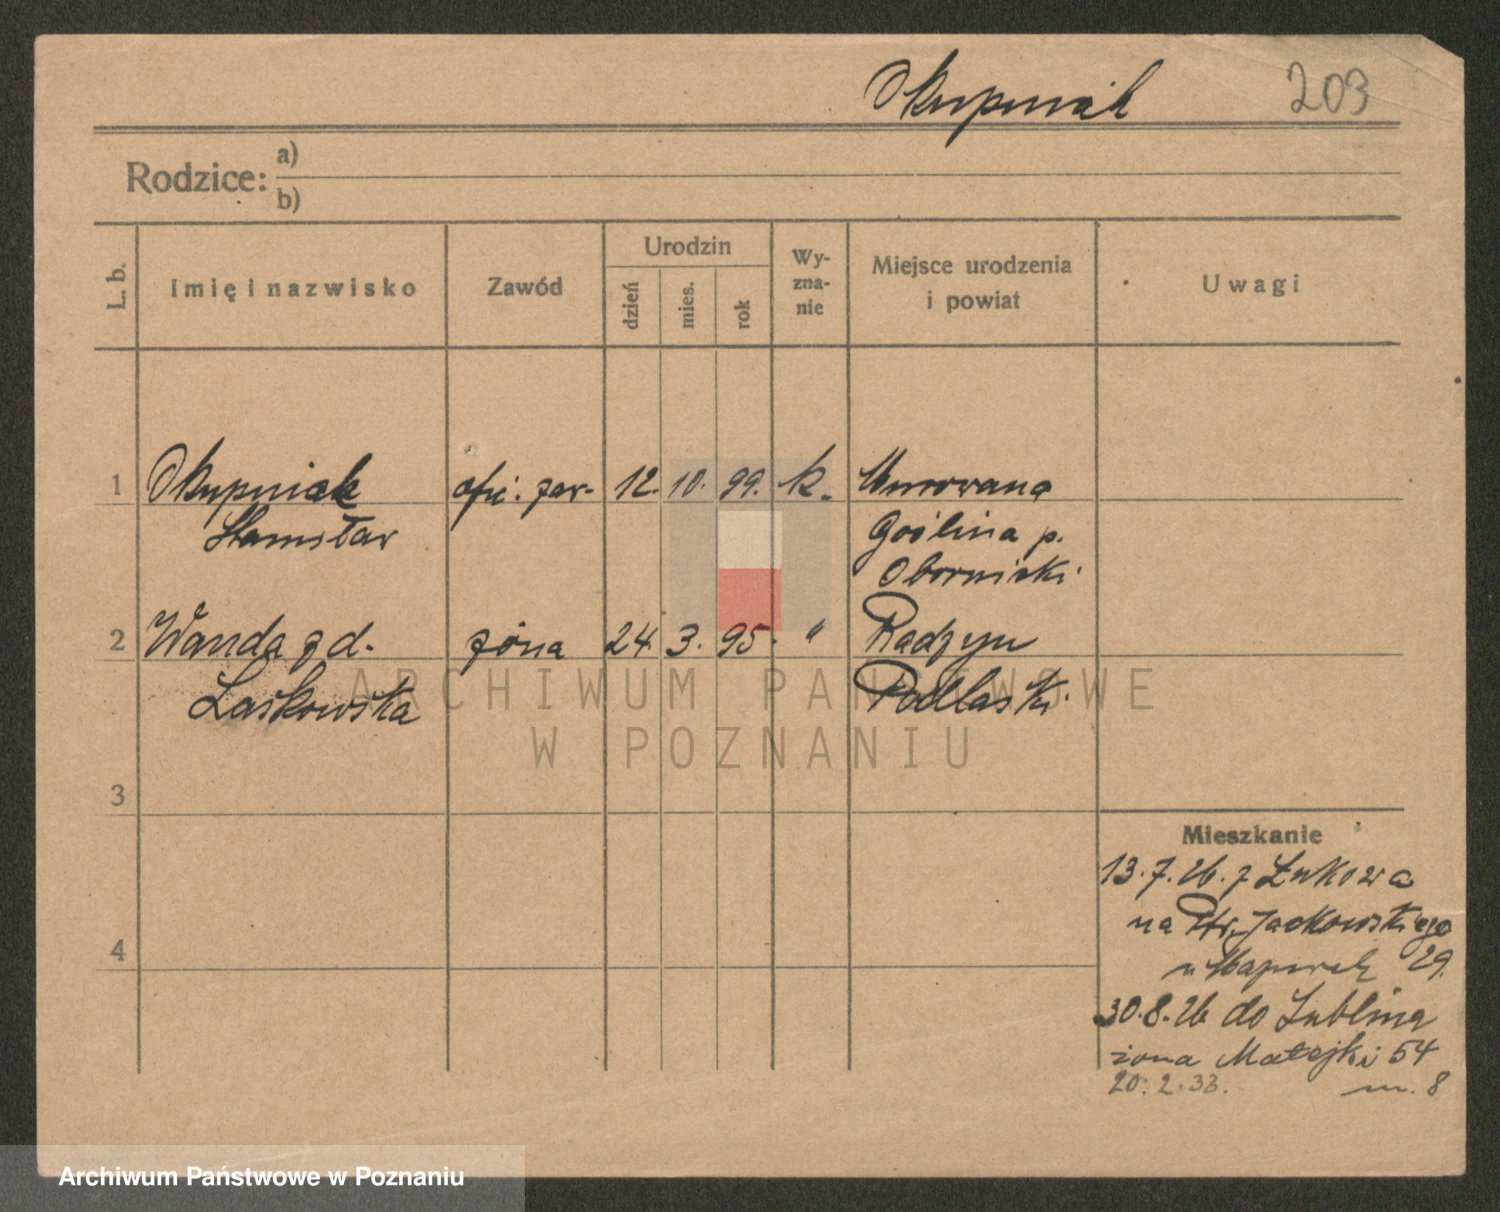 Skupniak 203
Rodzice: a)
b)
L. b. Imię i nazwisko Zawód Urodzin dzień mies. rok Wy-zna-nie Miejsce urodzenia i powiat Uwagi
1 Skupniak ofic. zaw. 12. 10. 99. k. Murowana
Stanisław Goślina p.
Obornicki
2 Wanda z d. żona 24. 3. 95. " Radzyn
Laskowska Podlaski
3
4
Mieszkanie
13.7.26. z Łukowa
na Ptr. Jackowskiego
u 29.
30.8.26 do Lublina
żona Matejki 54
20.2.33. m. 8
ARCHIWUM PAŃSTWOWE
W POZNANIU
Archiwum Państwowe w Poznaniu